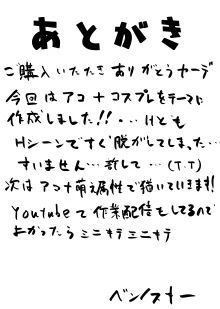 あとがき
ご購入いただき ありがとうサーデ
今回はアコ＋コスプレをテーマに
作成しました!!… Hども
Hシーンですぐ脱がしてしまった…
すいません…許して…(T.T)
次はアコ＋萌え属性で描いていきます!
Youtubeで作業配信もしてるので
よかったらミニキテミニキテ
ベンノスキー